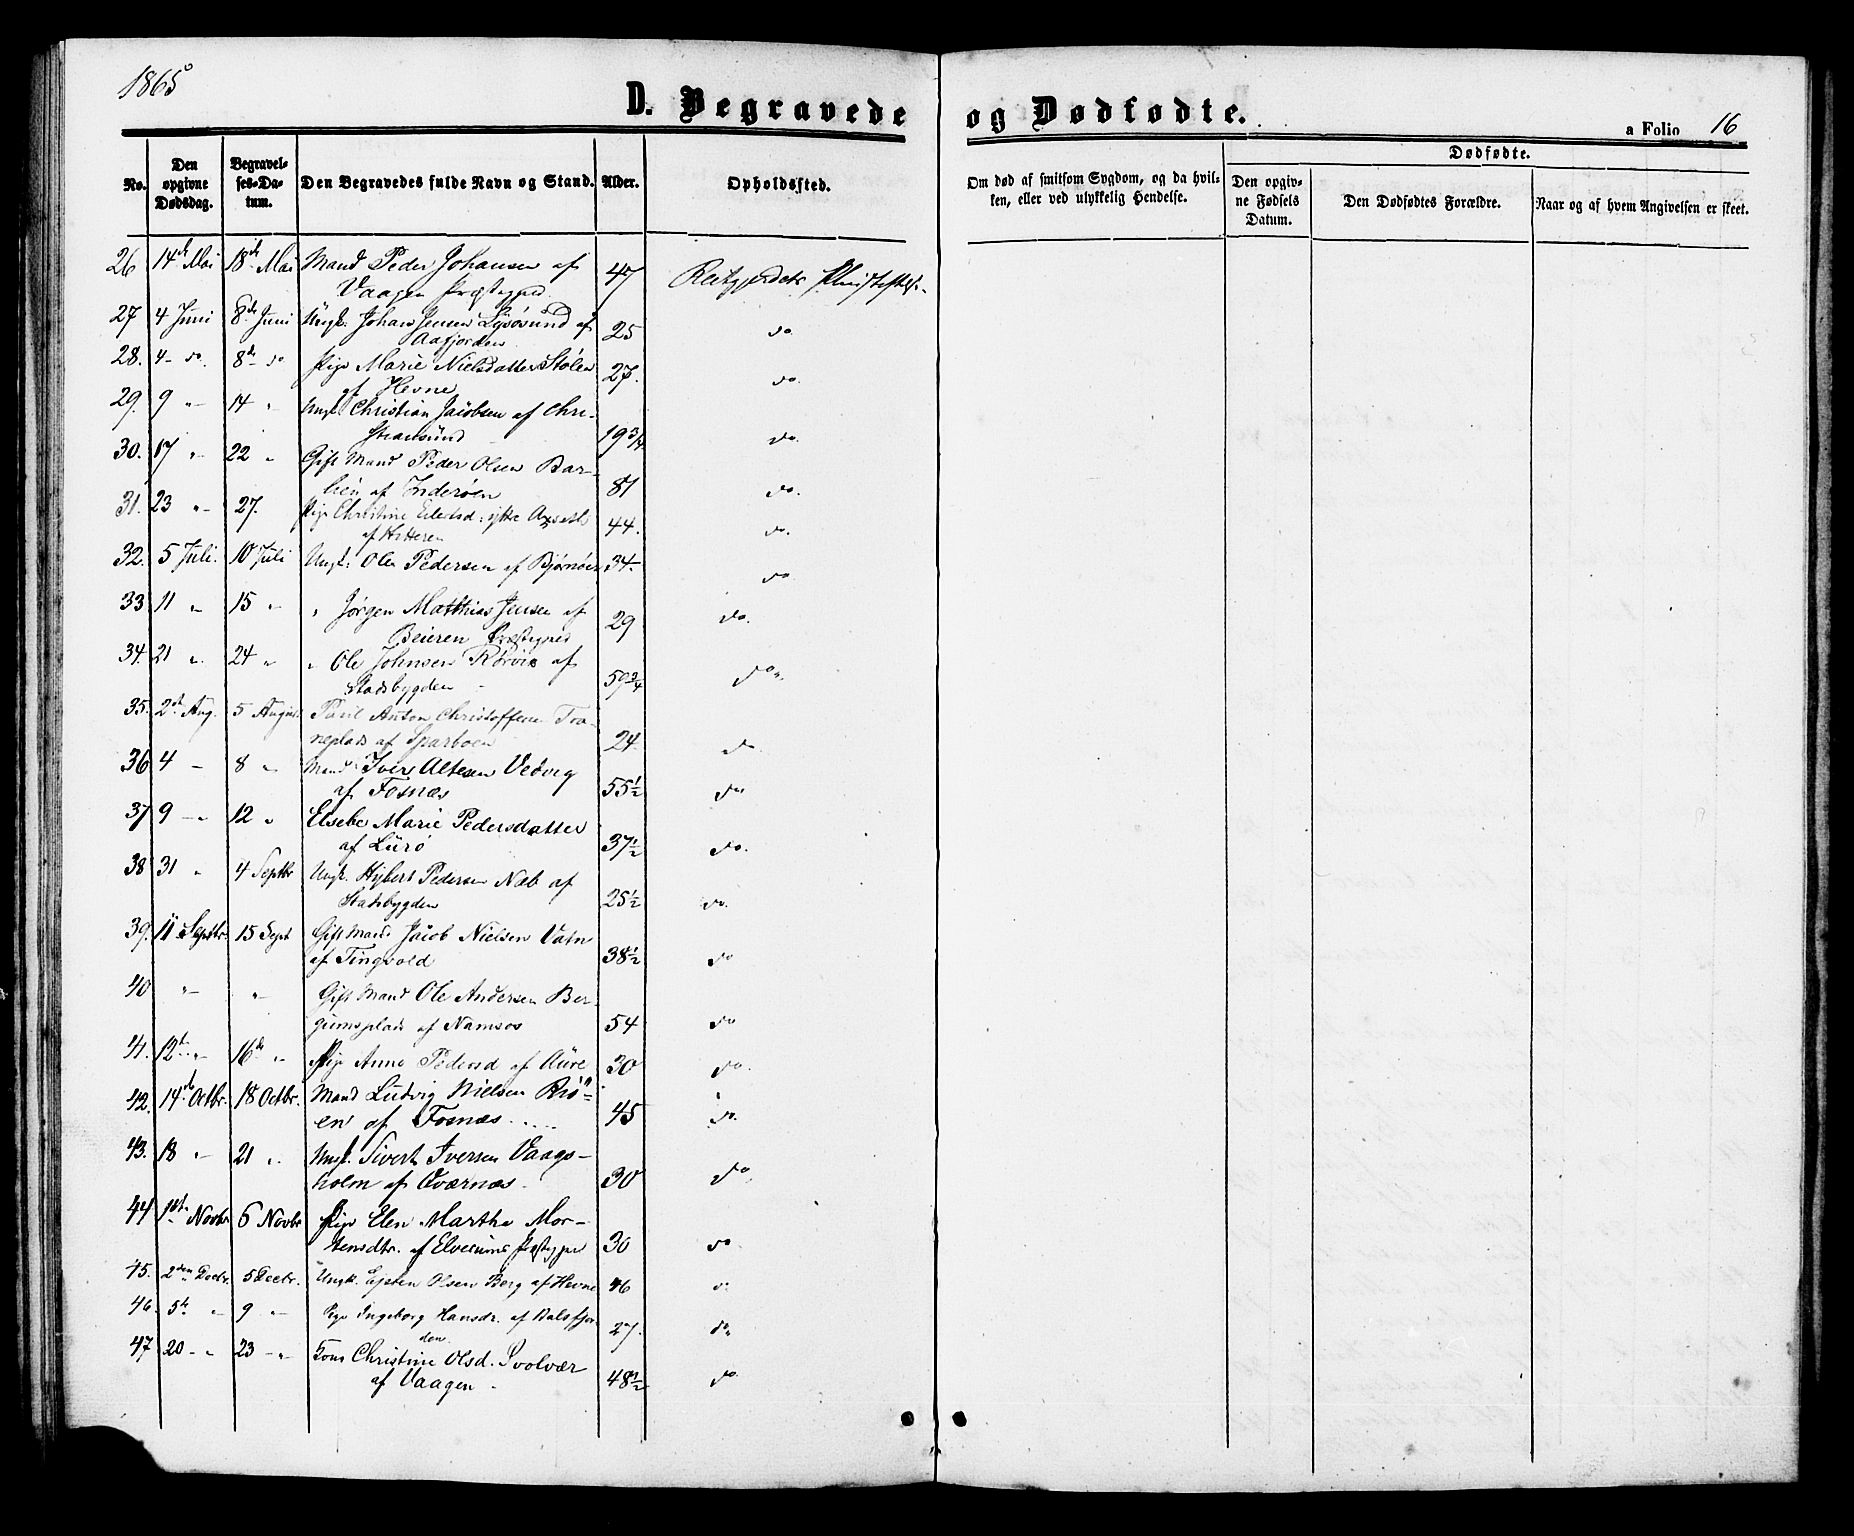 1865
D. Begravede og Dødfødte.
a Folio 16
No. Den opgivne Dødsdag. Begravelses-Datum. Den Begravedes fulde Navn og Stand. Alder. Opholdssted. Om død af smitsom Sygdom, og da hvilken, eller ved ulykkelig Hendelse. Dødfødte. Den opgivne Fødsels Datum. Den Dødfødtes Forældre. Naar og af hvem Angivelsen er skeet.
26 14de Mai 18de Mai Mand Peder Johansen af
Vaagen Præstegjed 47 Reitgjerdets
27 4 Juni 8de Juni Ungk. Johan Jensen Lysøsund af
Aafjorden 25 do
28. 4 - do. 8de do Pige Marie Nielsdatter Stølen
af Hevne 27. do.
29. 9 " 14 " Ungk. Christian Jacobsen af Chri-
stiansund 19 3/4 do.
30. 17 " 22 " Gift Mand Peder Olsen Bar-
lien af Inderøen 81 do.
31. 23 " 27. Pige Christine Eilertsd.
af Hitteren 44. do.
32. 5 Juli. 10 Juli Ungk: Ole Pedersen af Bjørnør 34. do
33 11 " 15 " " Jørgen Matthias Jensen af
Beieren Præstegjed 29 do.
34. 21 " 24 " " Ole Johnsen Rørvik af
Stadsbygden 59 3/4 do.
35. 2de Aug. 5 August Paul Anton Christoffersen Tra-
neplads af Sparboen 24 do
36 4 - 8 " Mand Iver Altesen Vedvig
af Fosnæs 55 1/2 do
37 9 - " 12 " Elsebe Marie Pedersdatter
af Lurø 37 1/2 do.
38 31 " 4 Septbr Ungk. Hybert Pedersen Næb af
Stadsbygden 25 1/2 do.
39. 11 Septbr. 15 Sept Gift Mand Jacob Nielsen Vatn
af Tingvold 38 1/2 do
40 " " Gift Mand Ole Andersen Ber-
gumsplads af Namsos 54 do
41. 12te " 16de " Pige Anne Pedersd af Aure 30 do.
42. 14de Octbr. 18 Octbr. Mand Ludvig Nielsen Riø-
en af Fosnæs 45 do.
43. 18 " 21 " Ungk. Sivert Iversen Vaags-
holm af Qværnæs. 30 do.
44 1ste Novbr 6 Novbr Pige Elen Martha Mor-
tensdtr. af Elverums Præstegjed 30 do
45. 2den Decbr. 5 Decbr. Ungk. Eysten Olsen Berg af Hevne 46 do
46. 5te " 9 " Pige Ingeborg Hansdr. af Balsfjor-
den 27. do
47 20 - " 23 - " Kone Christine Olsd. Svolvær
af Vaagen. 48 1/2 do.